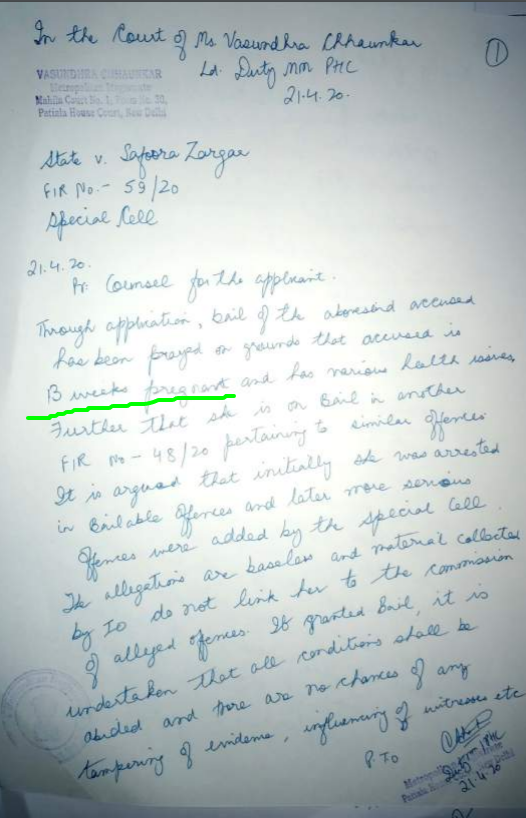 In the Court of Ms Vasundhra Chhaunkar
Ld. Duty MM PHC
21.4.20.
1
VASUNDHRA CHHAUNKAR
Metropolitan Magistrate
Mahila Court No. 1, Room No. 20,
Patiala House Court, New Delhi
State v. Safoora Zargar
FIR No.- 59/20
Special Cell
21.4.20.
Pr: Counsel for the applicant.
Through application, bail of the aforesaid accused
has been prayed on grounds that accused is
13 weeks pregnant and has various health issues.
Further that she is on Bail in another
FIR no - 48/20 pertaining to similar offences
It is argued that initially she was arrested
in Bailable offences and later more serious
offences were added by the Special Cell.
The allegations are baseless and material collected
by IO do not link her to the commission
of alleged offences. If granted Bail, it is
undertaken that all conditions shall be
abided and there are no chances of any
tampering of evidence, influencing of witnesses etc
P.TO
Duty MM/PHC
Metropolitan Magistrate
New Delhi
21.4.20